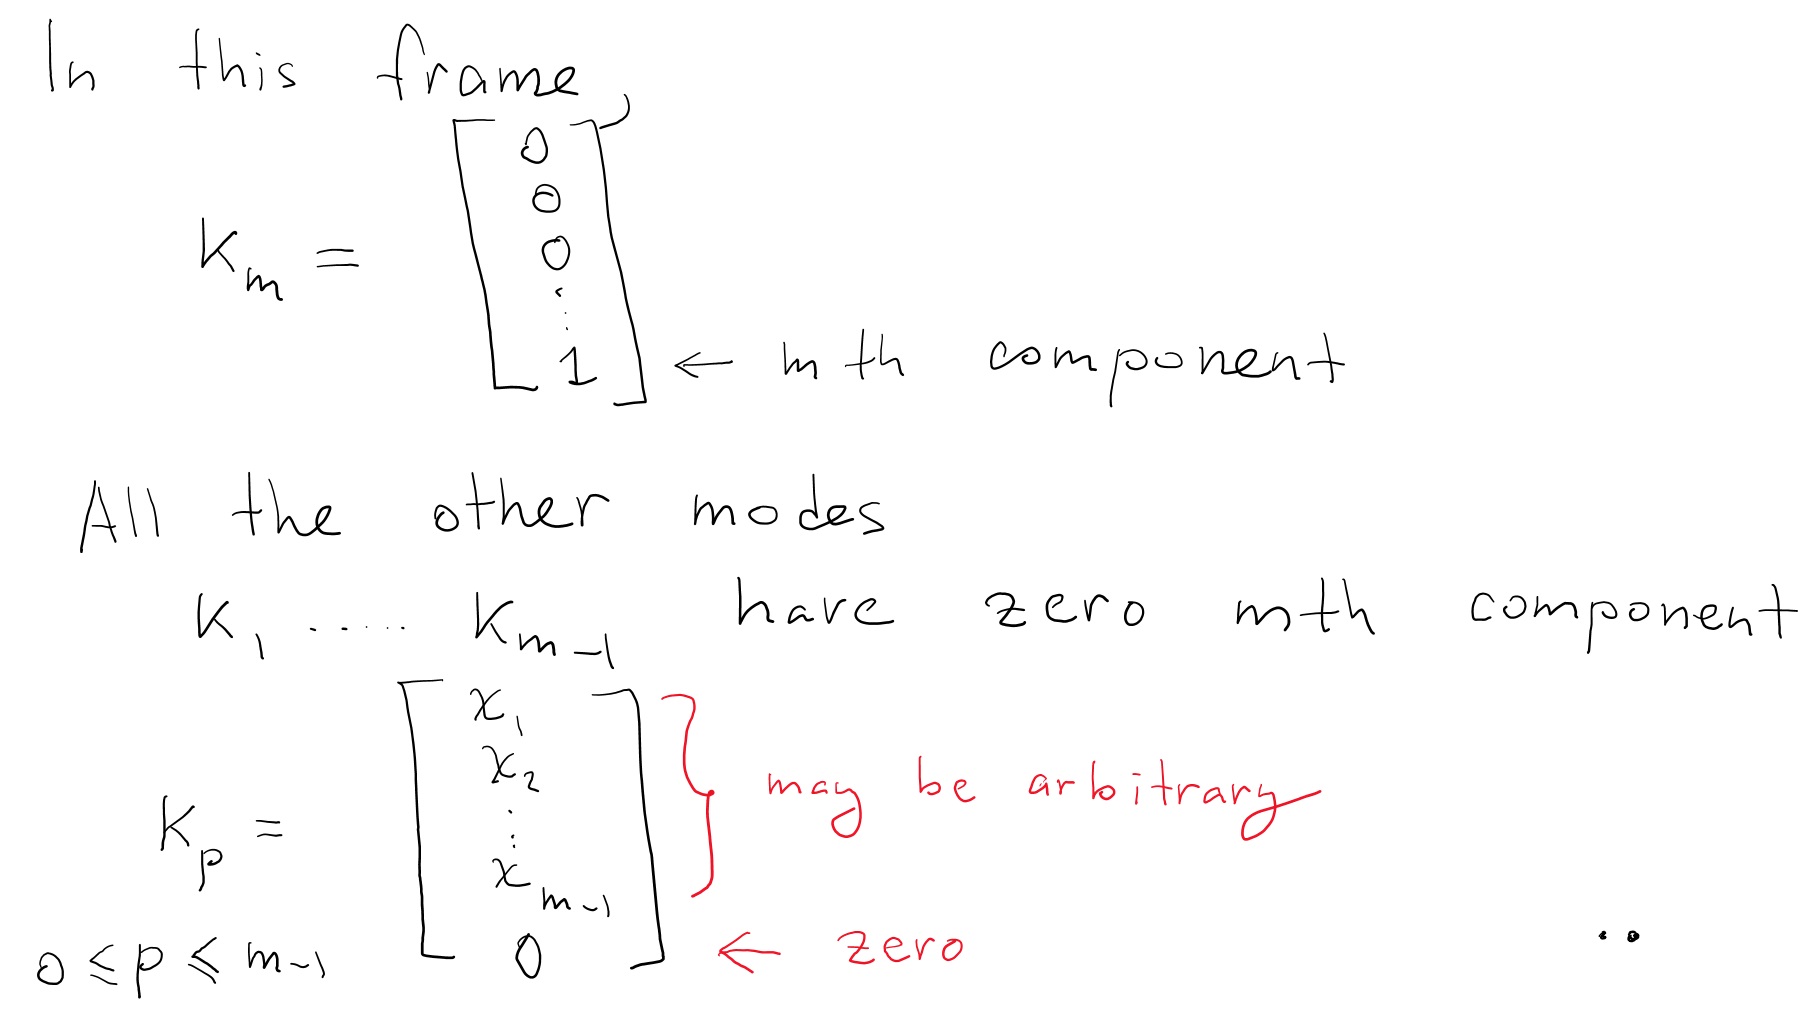 In this frame,
K_m = [ 0
0
0
⋮
1 ] ← mth component
All the other modes
K_1 ..... K_{m-1} have zero mth component
K_p = [ x_1
x_2
⋮
x_{m-1}
0 ]
} may be arbitrary
← zero
0 ≤ p ≤ m-1